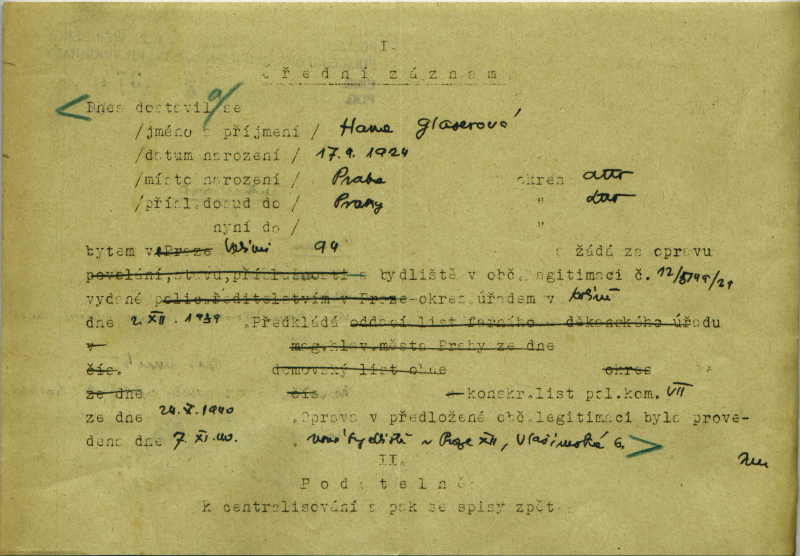 I.
Ú ř e d n í  z á z n a m
Dnes dostavil a se
/jméno a příjmení / Hana Glaserová
/datum narození / 17.9. 1924
/místo narození / Praha okres dtto
/přísl.dosud do / Prahy " dtto
nyní do / "
bytem v Praze 94 a žádá za opravu
povolání,stavu,příslušnosti a bydliště v obč.legitimaci č. 12/8149/29
vydané polic.ředitelstvím v Praze-okres.úřadem v
dne 2. XII. 1939 .Předkládá oddací list farního - děkanského úřadu
v mag.hlav.města Prahy ze dne
čís. domovský list obce okres
ze dne čís. a konskr.list pol.kom. VII
ze dne 24.X.1940 .Oprava v předložené obč.legitimaci byla prove-
dena dne 7. XI.40. , nové bydliště v Praze XII, Vlašimská 6.
II.
P o d a t e l n ě
k centralisování a pak se spisy zpět.